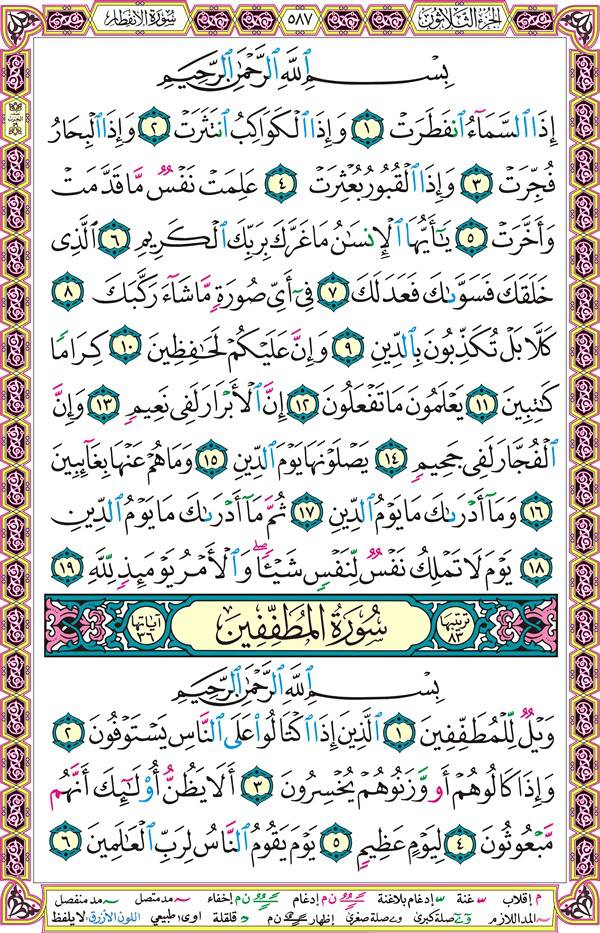 الجزء الثلاثون
٥٨٧
سورة الانفطار
بِسْمِ ٱللَّهِ ٱلرَّحْمَٰنِ ٱلرَّحِيمِ
إِذَا ٱلسَّمَآءُ ٱنفَطَرَتْ ١ وَإِذَا ٱلْكَوَاكِبُ ٱنتَثَرَتْ ٢ وَإِذَا ٱلْبِحَارُ
فُجِّرَتْ ٣ وَإِذَا ٱلْقُبُورُ بُعْثِرَتْ ٤ عَلِمَتْ نَفْسٌ مَّا قَدَّمَتْ
وَأَخَّرَتْ ٥ يَٰٓأَيُّهَا ٱلْإِنسَٰنُ مَا غَرَّكَ بِرَبِّكَ ٱلْكَرِيمِ ٦ ٱلَّذِى
خَلَقَكَ فَسَوَّىٰكَ فَعَدَلَكَ ٧ فِىٓ أَىِّ صُورَةٍ مَّا شَآءَ رَكَّبَكَ ٨
كَلَّا بَلْ تُكَذِّبُونَ بِٱلدِّينِ ٩ وَإِنَّ عَلَيْكُمْ لَحَٰفِظِينَ ١٠ كِرَامًا
كَٰتِبِينَ ١١ يَعْلَمُونَ مَا تَفْعَلُونَ ١٢ إِنَّ ٱلْأَبْرَارَ لَفِى نَعِيمٍ ١٣ وَإِنَّ
ٱلْفُجَّارَ لَفِى جَحِيمٍ ١٤ يَصْلَوْنَهَا يَوْمَ ٱلدِّينِ ١٥ وَمَا هُمْ عَنْهَا بِغَآئِبِينَ
١٦ وَمَآ أَدْرَىٰكَ مَا يَوْمُ ٱلدِّينِ ١٧ ثُمَّ مَآ أَدْرَىٰكَ مَا يَوْمُ ٱلدِّينِ
١٨ يَوْمَ لَا تَمْلِكُ نَفْسٌ لِّنَفْسٍ شَيْـًٔا ۖ وَٱلْأَمْرُ يَوْمَئِذٍ لِّلَّهِ ١٩
ترتيبها ٨٣
سُورَةُ المُطَفِّفِينَ
آياتها ٣٦
بِسْمِ ٱللَّهِ ٱلرَّحْمَٰنِ ٱلرَّحِيمِ
وَيْلٌ لِّلْمُطَفِّفِينَ ١ ٱلَّذِينَ إِذَا ٱكْتَالُوا۟ عَلَى ٱلنَّاسِ يَسْتَوْفُونَ ٢
وَإِذَا كَالُوهُمْ أَو وَّزَنُوهُمْ يُخْسِرُونَ ٣ أَلَا يَظُنُّ أُو۟لَٰٓئِكَ أَنَّهُم
مَّبْعُوثُونَ ٤ لِيَوْمٍ عَظِيمٍ ٥ يَوْمَ يَقُومُ ٱلنَّاسُ لِرَبِّ ٱلْعَٰلَمِينَ ٦
م إقلاب غنة إدغام بلاغنة ن م إدغام ن م إخفاء مد متصل مد منفصل
المد اللازم صلة كبرى صلة صغرى إظهار ن م قلقلة اوى: طبيعي اللون الأزرق: لا يلفظ